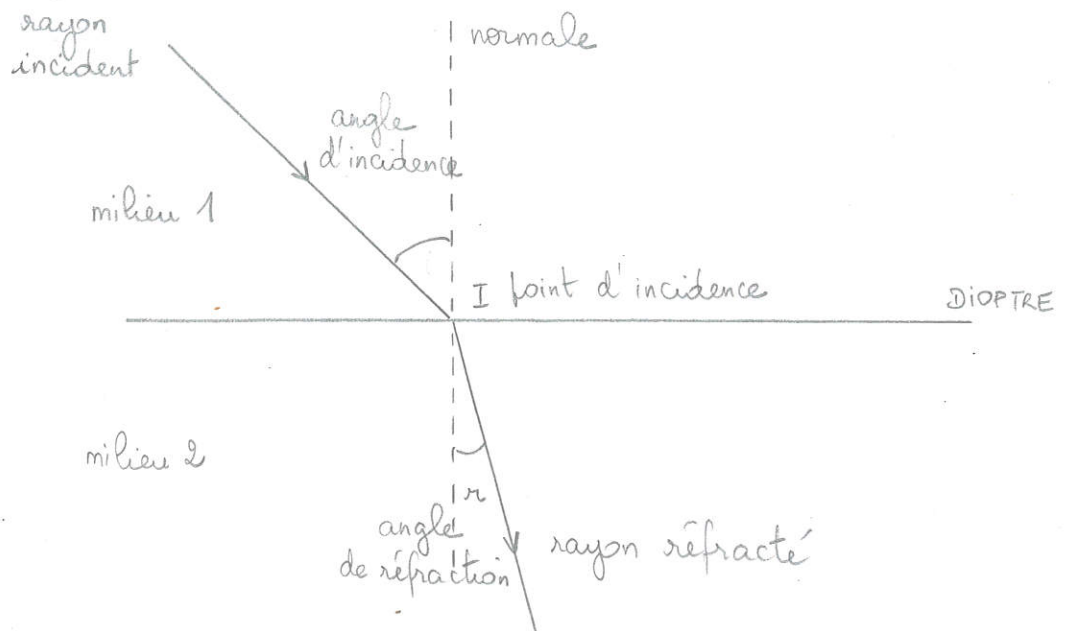 rayon
incident
normale
angle
d'incidence
milieu 1
I point d'incidence
DIOPTRE
milieu 2
r
angle
de réfraction
rayon réfracté